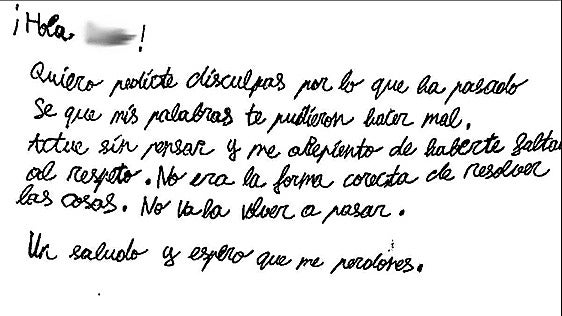 ¡Hola !
Quiero pedirte disculpas por lo que ha pasado
Se que mis palabras te pudieron hacer mal.
Actue sin pensar y me arepiento de haberte falta
al respeto. No era la forma corecta de resolver
las cosas. No va la volver a pasar.
Un saludo y espero que me perdones.